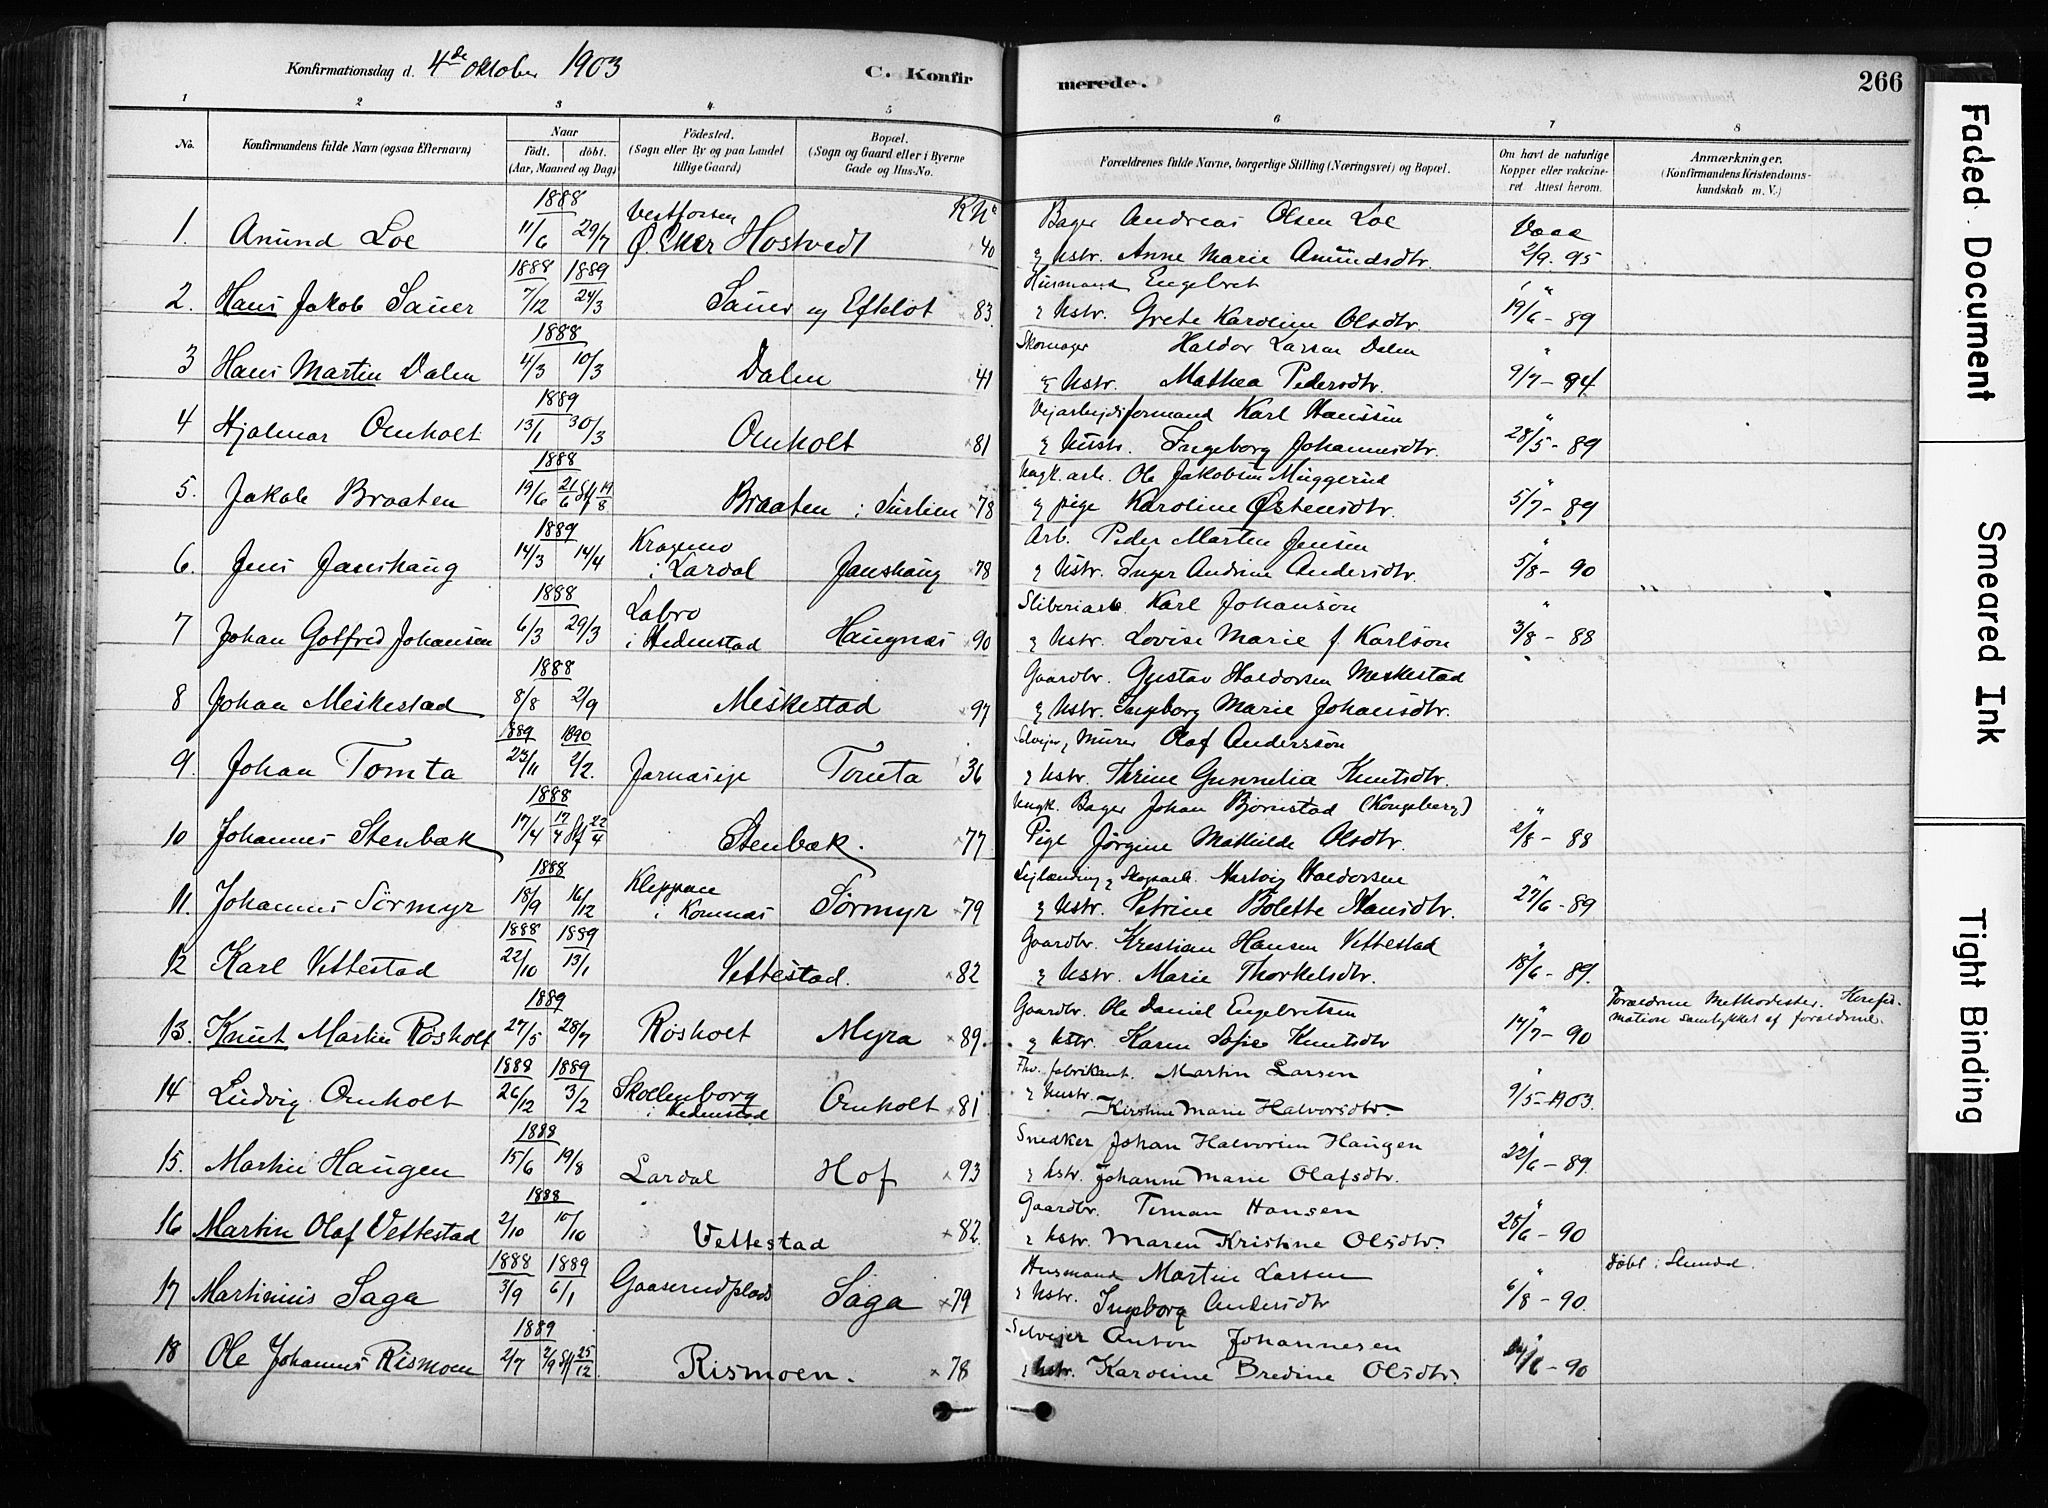 Konfirmationsdag d. 4de Oktober 1903
C. Konfirmerede.
266
1 2 3 4 5 6 7 8
No.
Konfirmandens fulde Navn (ogsaa Efternavn)
Naar
födt. döbt.
(Aar, Maaned og Dag)
Födested.
(Sogn eller By og paa Landet
tillige Gaard)
Bopæl.
(Sogn og Gaard eller i Byerne
Gade og Hus-No.
Forældrenes fulde Navne, borgerlige Stilling (Næringsvei) og Bopæl.
Om havt de naturlige
Kopper eller vakcine-
ret Attest herom.
Anmærkninger.
(Konfirmandens Kristendoms-
kundskab m. V.)
1888 Vestfossen Bager Andreas Olsen Loe
1. Amund Loe 11/6 29/7 Ø. Eker Hostvedt 40 & Hstr. Anne Marie Amundsdtr. 2/9. 95
1888 1889 Husmand Engebret
2. Hans Jakob Sauer 7/12 24/3 Sauer og Eftelot 83. & Hstr. Grete Karoline Olsdtr 19/6 - 89
1888 Skomager Haldor Larsen Dalen "
3 Hans Martin Dalen 4/3 10/3 Dalen 41 & Hstr. Mathea Pedersdtr. 9/7 - 94.
1889 Vejarbejdsformand Karl Hanssen "
4 Hjalmar Omholt 13/1 30/3 Omholt 81 & Hustr. Ingeborg Johannesdtr. 28/5 - 89
1888 Ungk. arb. Ole Jakobsen Muggerud "
5. Jakob Braaten 19/6 21/6 Stf 19/8 Braaten i Surlien 78 & pige Karoline Østensdtr. 5/7 - 89
1889 Kragmo Arb. Peder Martin Jensen "
6. Jens Janshaug 14/3 14/4 i Lardal Janshaug 78 & Hstr. Inger Andrine Andersdtr. 5/8 - 90
1888 Labro Sliberiarb. Karl Johanson "
7 Johan Gotfred Johansen 6/3 29/3 i Hedenstad Haugnæs 90 & Hstr. Lovise Marie f. Karlson 3/8 - 88
1888 Gaardbr. Gustav Haldorsen Meskestad
8 Johan Meskestad 8/8 2/9 Meskestad 97 & Hstr. Ingeborg Marie Johansdtr.
1889 1890 Selvejer & Murer Olaf Andersson
9. Johan Tomta 23/11 2/2. Jarnaseje Tomta 36 & Hstr. Thrine Gunnelia Knutsdtr.
1888 Ungk. Bager Johan Bjørnstad (Kongsberg) "
10 Johannes Stenbæk 17/4 17/4 Stf 22/4 Stenbæk. 77 Pige Jørgine Mathilde Olsdtr. 2/8 - 88
1888 Kleppan Lejlænding & Skogsarb. Hartvig Haldorsen "
11. Johannes Sørmyr 18/9 16/12 i Komnæs Sørmyr 79 & Hstr. Petrine Bolette Hansdtr. 27/6 - 89
1888 1889 Gaardbr. Kristian Hansen Vettestad "
12 Karl Vettestad 22/10 13/1 Vettestad. 82 & Hstr. Marie Thorkelsdtr. 18/6 - 89.
1889 Gaardbr. Ole Daniel Engebretsen " Forældrene Methodister. Konfir-
13. Knut Martin Røsholt 27/5 28/7 Røsholt Myra 89. & Hstr. Karen Sofie Knutsdtr 14/7 - 90 mation samtykket af forældrene.
1888 1889 Skollenborg Thv. fabrikant. Martin Larsen "
14 Ludvig Omholt 26/12 3/2 i Hedenstad Omholt 81 & Hustr. Kirstine Marie Halvorsdtr 9/5 - 1903.
1888 Snedker Johan Halvorsen Haugen "
15. Martin Haugen 15/6 19/8 Lardal Hof 93 & Hstr. Johanne Marie Olafsdtr. 22/6 - 89.
1888 Gaardbr. Timan Hansen "
16 Martin Olaf Vettestad 2/10 10/10 Vettestad 82. & Hstr. Maren Kristine Olsdtr. 25/6 - 90
1888 1889 Husmand Martin Larsen " Døbt i
17 Martinius Saga 3/9 6/1 Gaaserudplads Saga 79 & Hstr. Ingeborg Andersdtr 6/8 - 90.
1889 Selvejer Anton Johannesen
18 Ole Johannes Rismoen 2/7 2/9 Stf 25/12 Rismoen. 78 & Hstr. Karoline Bredine Olsdtr. - 90
Faded Document
Smeared Ink
Tight Binding